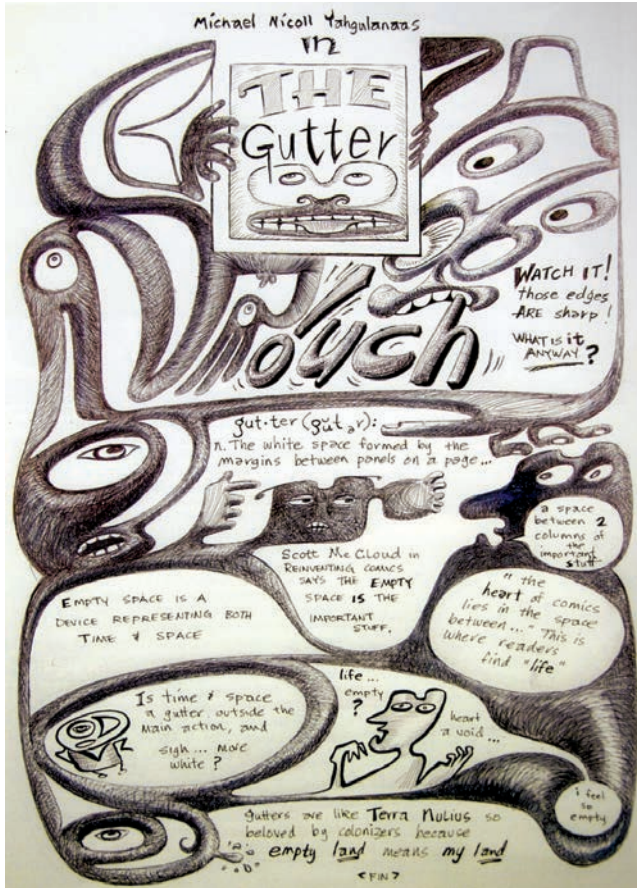 Michael Nicoll Yahgulanaas
in
THE
Gutter
WATCH IT!
those edges
ARE sharp!
WHAT IS it
ANYWAY?
Ouch
gut·ter (gŭt ər):
n. The white space formed by the
margins between panels on a page...
a space
between 2
columns of
the
important
stuff
Scott McCloud in
REINVENTING COMICS
SAYS THE EMPTY
SPACE IS THE
IMPORTANT
STUFF.
EMPTY SPACE IS A
DEVICE REPRESENTING BOTH
TIME & SPACE
"the
heart of comics
lies in the space
between..." This is
where readers
find "life"
Is time & space
a gutter outside the
main action, and
sigh... more
white?
life...
empty
?
heart
a void...
i feel
so
empty
gutters are like Terra Nulius so
beloved by colonizers because
empty land means my land
<FIN>